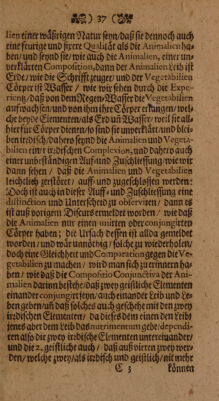 37
lien einer wäßrigen Natur seyn/daß sie dennoch auch
eine feurige und sixere Qualität als die Animalien ha-
ben/ und seynd sie/ wie auch die Animalien, einer un-
verklärten Composition,dann der Animalien Leib ist
Erde/ wie die Schrifft zeuget/ und der Vegetabilien
Cörper ist Wasser / wie wir sehen durch die Expe-
rienz/ daß von dem Regen-Wasser die Vegetabilien
auffwachsen/und von ihm ihre Cörper erlangen/ wel-
che beyde Elementen/als Erd uñ Wasser/ weil sie all-
hier für Cörper dienen/so sind sie unverklärt/und blei-
ben irrdisch/dahero seynd die Animalien und Vegeta-
bilien einer irrdischen Complexion, und dahero auch
einer unbeständigen Auf-und Zuschliessung/wie wir
dann sehen / daß die Animalien und Vegetabilien
leichtlich zerstöret / auff- und zugeschlossen werden:
Doch ist auch in dieser Auff- und Zuschliessung eine
distinction und Unterscheid zu observiren / dann es
ist aus vorigem Discurs ermeldet worden / wie daß
die Animalien nur einen unirten oder conjungirten
Cörper haben; die Ursach dessen ist allda gemeldet
worden/ und wär unnötig/ solche zu wiederholen/
doch eine Gleichheit und Comparation gegen die Ve-
getabilien zu machen / wird man sich zu erinnern ha-
ben / wie daß die Compositio Conjunctiva der Ani-
malien darinn bestehe/daß zwey geistliche Elementen
einander conjungirt seyn/ auch einander Leib und Le-
ben geben/uñ daß solches auch geschehe mit den zwey
irrdischen Elementen/ da dieses dem einen den Leib/
jenes aber dem Leib das nutrimentum gebe/dependi-
ren also die zwey irrdische Elementen untereinander/
und die 2. geistliche auch / daß auß vieren zwey wer-
den/ welche zwey/als irrdisch und geistlich/mit mehr
C 3 können